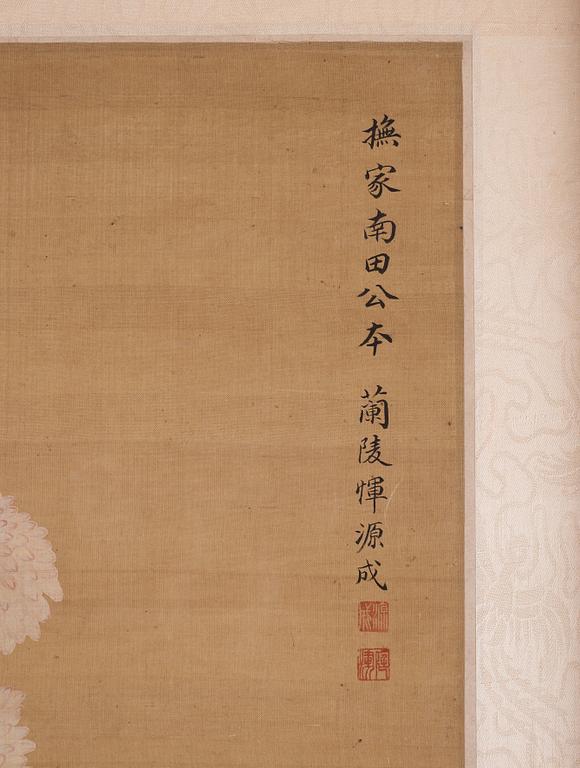 撫家南田公本 蘭陵惲源成
源成